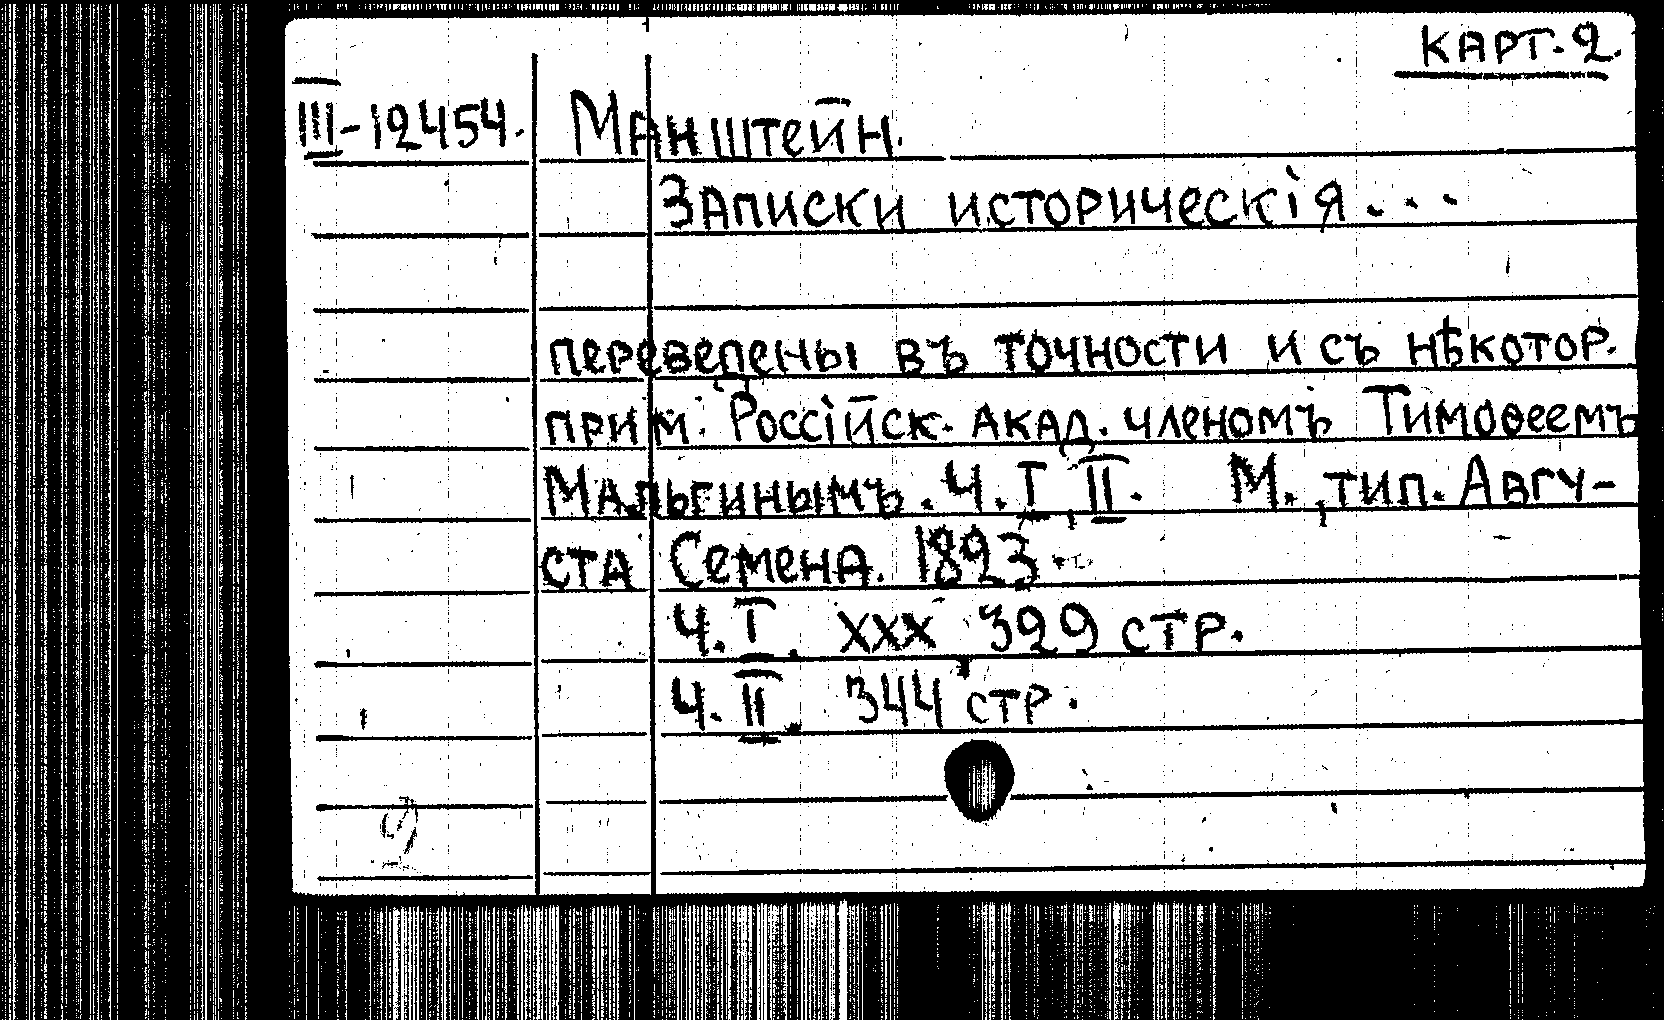 КАРТ. 2.
III-12454. Манштейн.
Записки историческія...
переведены въ точности и съ нѣкотор.
прим. Россійск. Акад. членомъ Тимоѳеемъ
Мальгинымъ. Ч. I, II. М., тип. Авгу-
ста Семена. 1823.
Ч. I. XXX, 329 стр.
Ч. II. 344 стр.